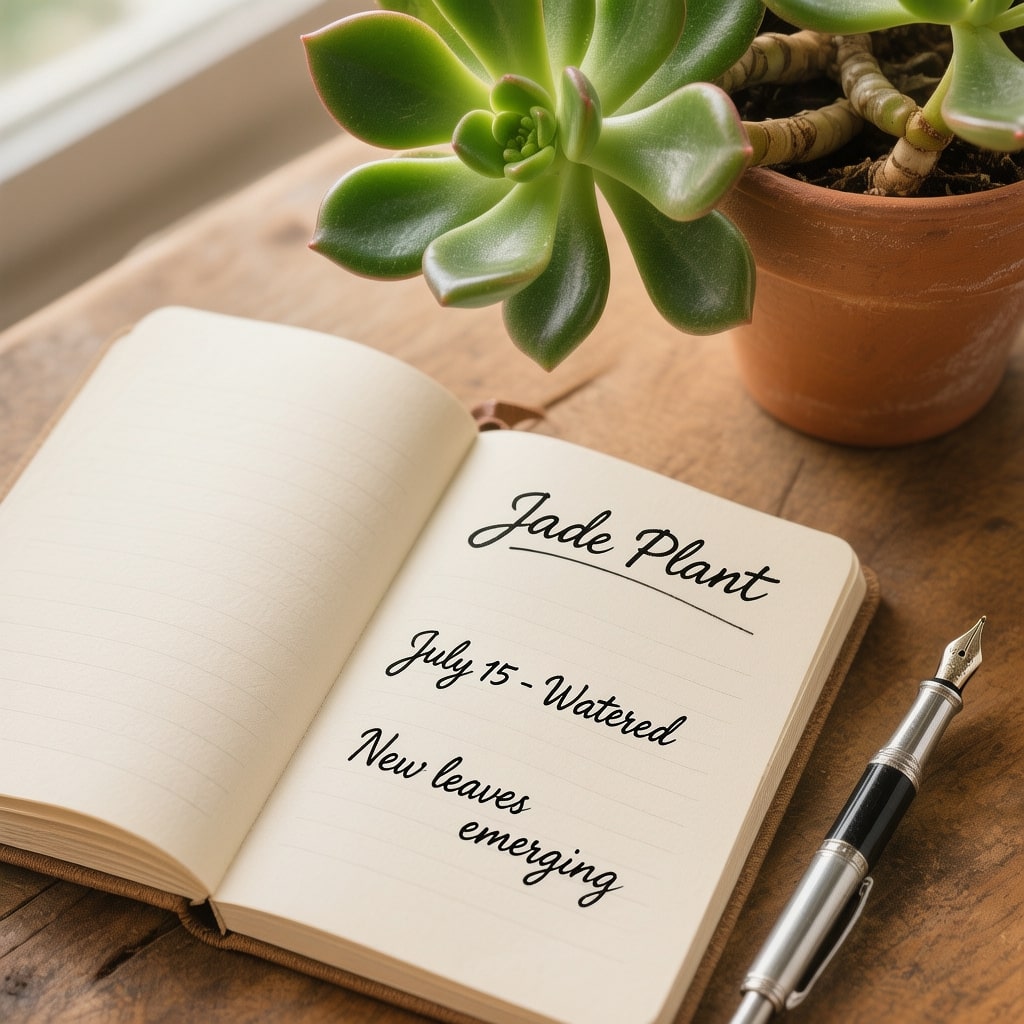 Jade Plant
July 15 - Watered
New leaves
emerging